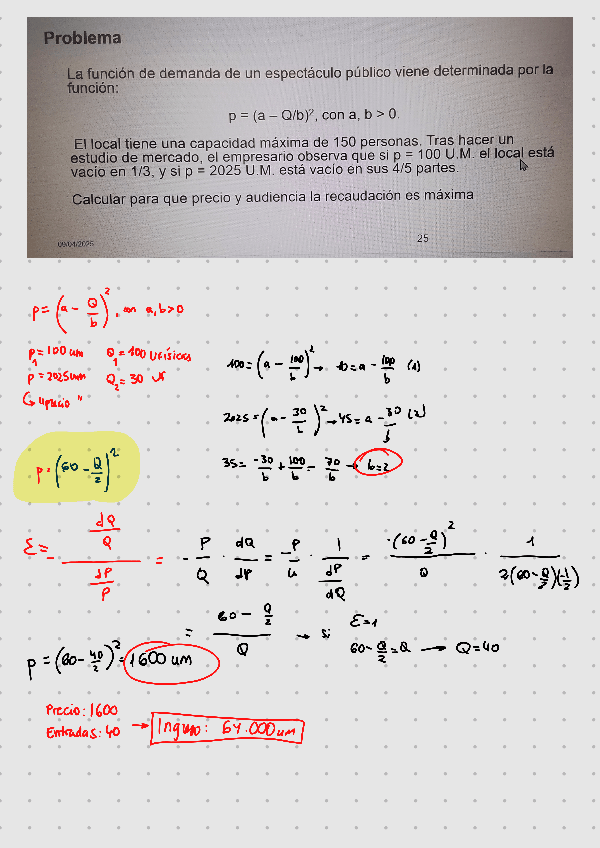 Problema
La función de demanda de un espectáculo público viene determinada por la
función:
p = (a – Q/b)², con a, b > 0.
El local tiene una capacidad máxima de 150 personas. Tras hacer un
estudio de mercado, el empresario observa que si p = 100 U.M. el local está
vacío en 1/3, y si p = 2025 U.M. está vacío en sus 4/5 partes.
Calcular para que precio y audiencia la recaudación es máxima
09/04/2025
25
p = (a - Q/b)², con a, b > 0
p₁ = 100 um Q₁ = 100 U físicas
p = 2025 um Q₂ = 30 uf
↳ "precio"
100 = (a - 100/b)² → 10 = a - 100/b (1)
2025 = (a - 30/b)² → 45 = a - 30/b (2)
35 = -30/b + 100/b = 70/b → b = 2
p = (60 - Q/2)²
ε = - (dQ/Q)/(dP/P) = - P/Q · dQ/dP = -P/Q · 1/(dP/dQ) = -(60 - Q/2)²/Q · 1/(2(60 - Q/2)(-1/2))
= (60 - Q/2)/Q → si ε = 1
60 - Q/2 = Q → Q = 40
p = (60 - 40/2)² = 1600 um
Precio: 1600
Entradas: 40 → Ingreso: 64.000 um